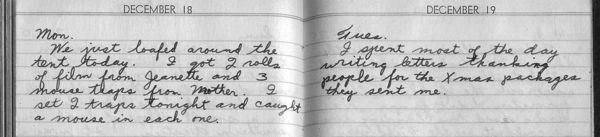 DECEMBER 18
Mon.
We just loafed around the
tent today. I got 2 rolls
of film from Jeanette and 3
mouse traps from Mother. I
set 2 traps tonight and caught
a mouse in each one.
DECEMBER 19
Tues.
I spent most of the day
writing letters thanking
people for the Xmas packages
they sent me.